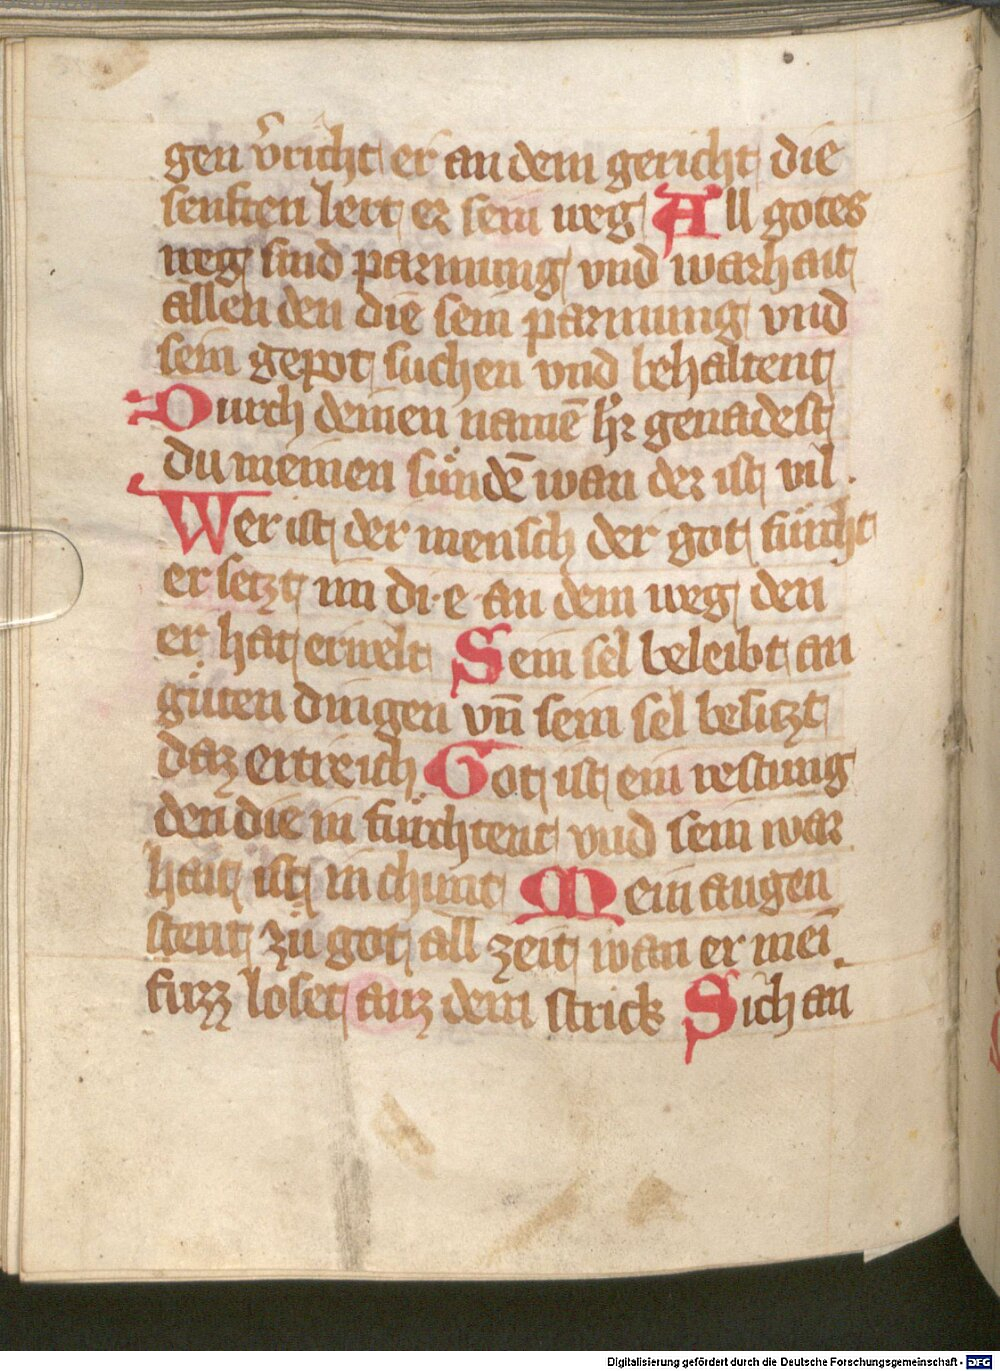 gen v̄richt er an dem gericht die
senften lert er sein weg All gotes
weg sind parmung vnd warhait
allen den die sein parmung vnd
sein gepot suchen vnd behaltent
Durch deinen namē hr genadest
du meinen sündē wan der ist vil .
Wer ist der mensch der got fürcht
er setzt im di·e· an dem weg den
er hat erwelt Sein sel beleibt an
güten dingen vn̄ sein sel besitzt
daz ertreich Got ist ein vestung
den die in fürchtent vnd sein war
hait ist in chunt Mein augen
stent zü got all zeit wan er mei
fuzz loset auz dem strick Sich an
Digitalisierung gefördert durch die Deutsche Forschungsgemeinschaft - DFG